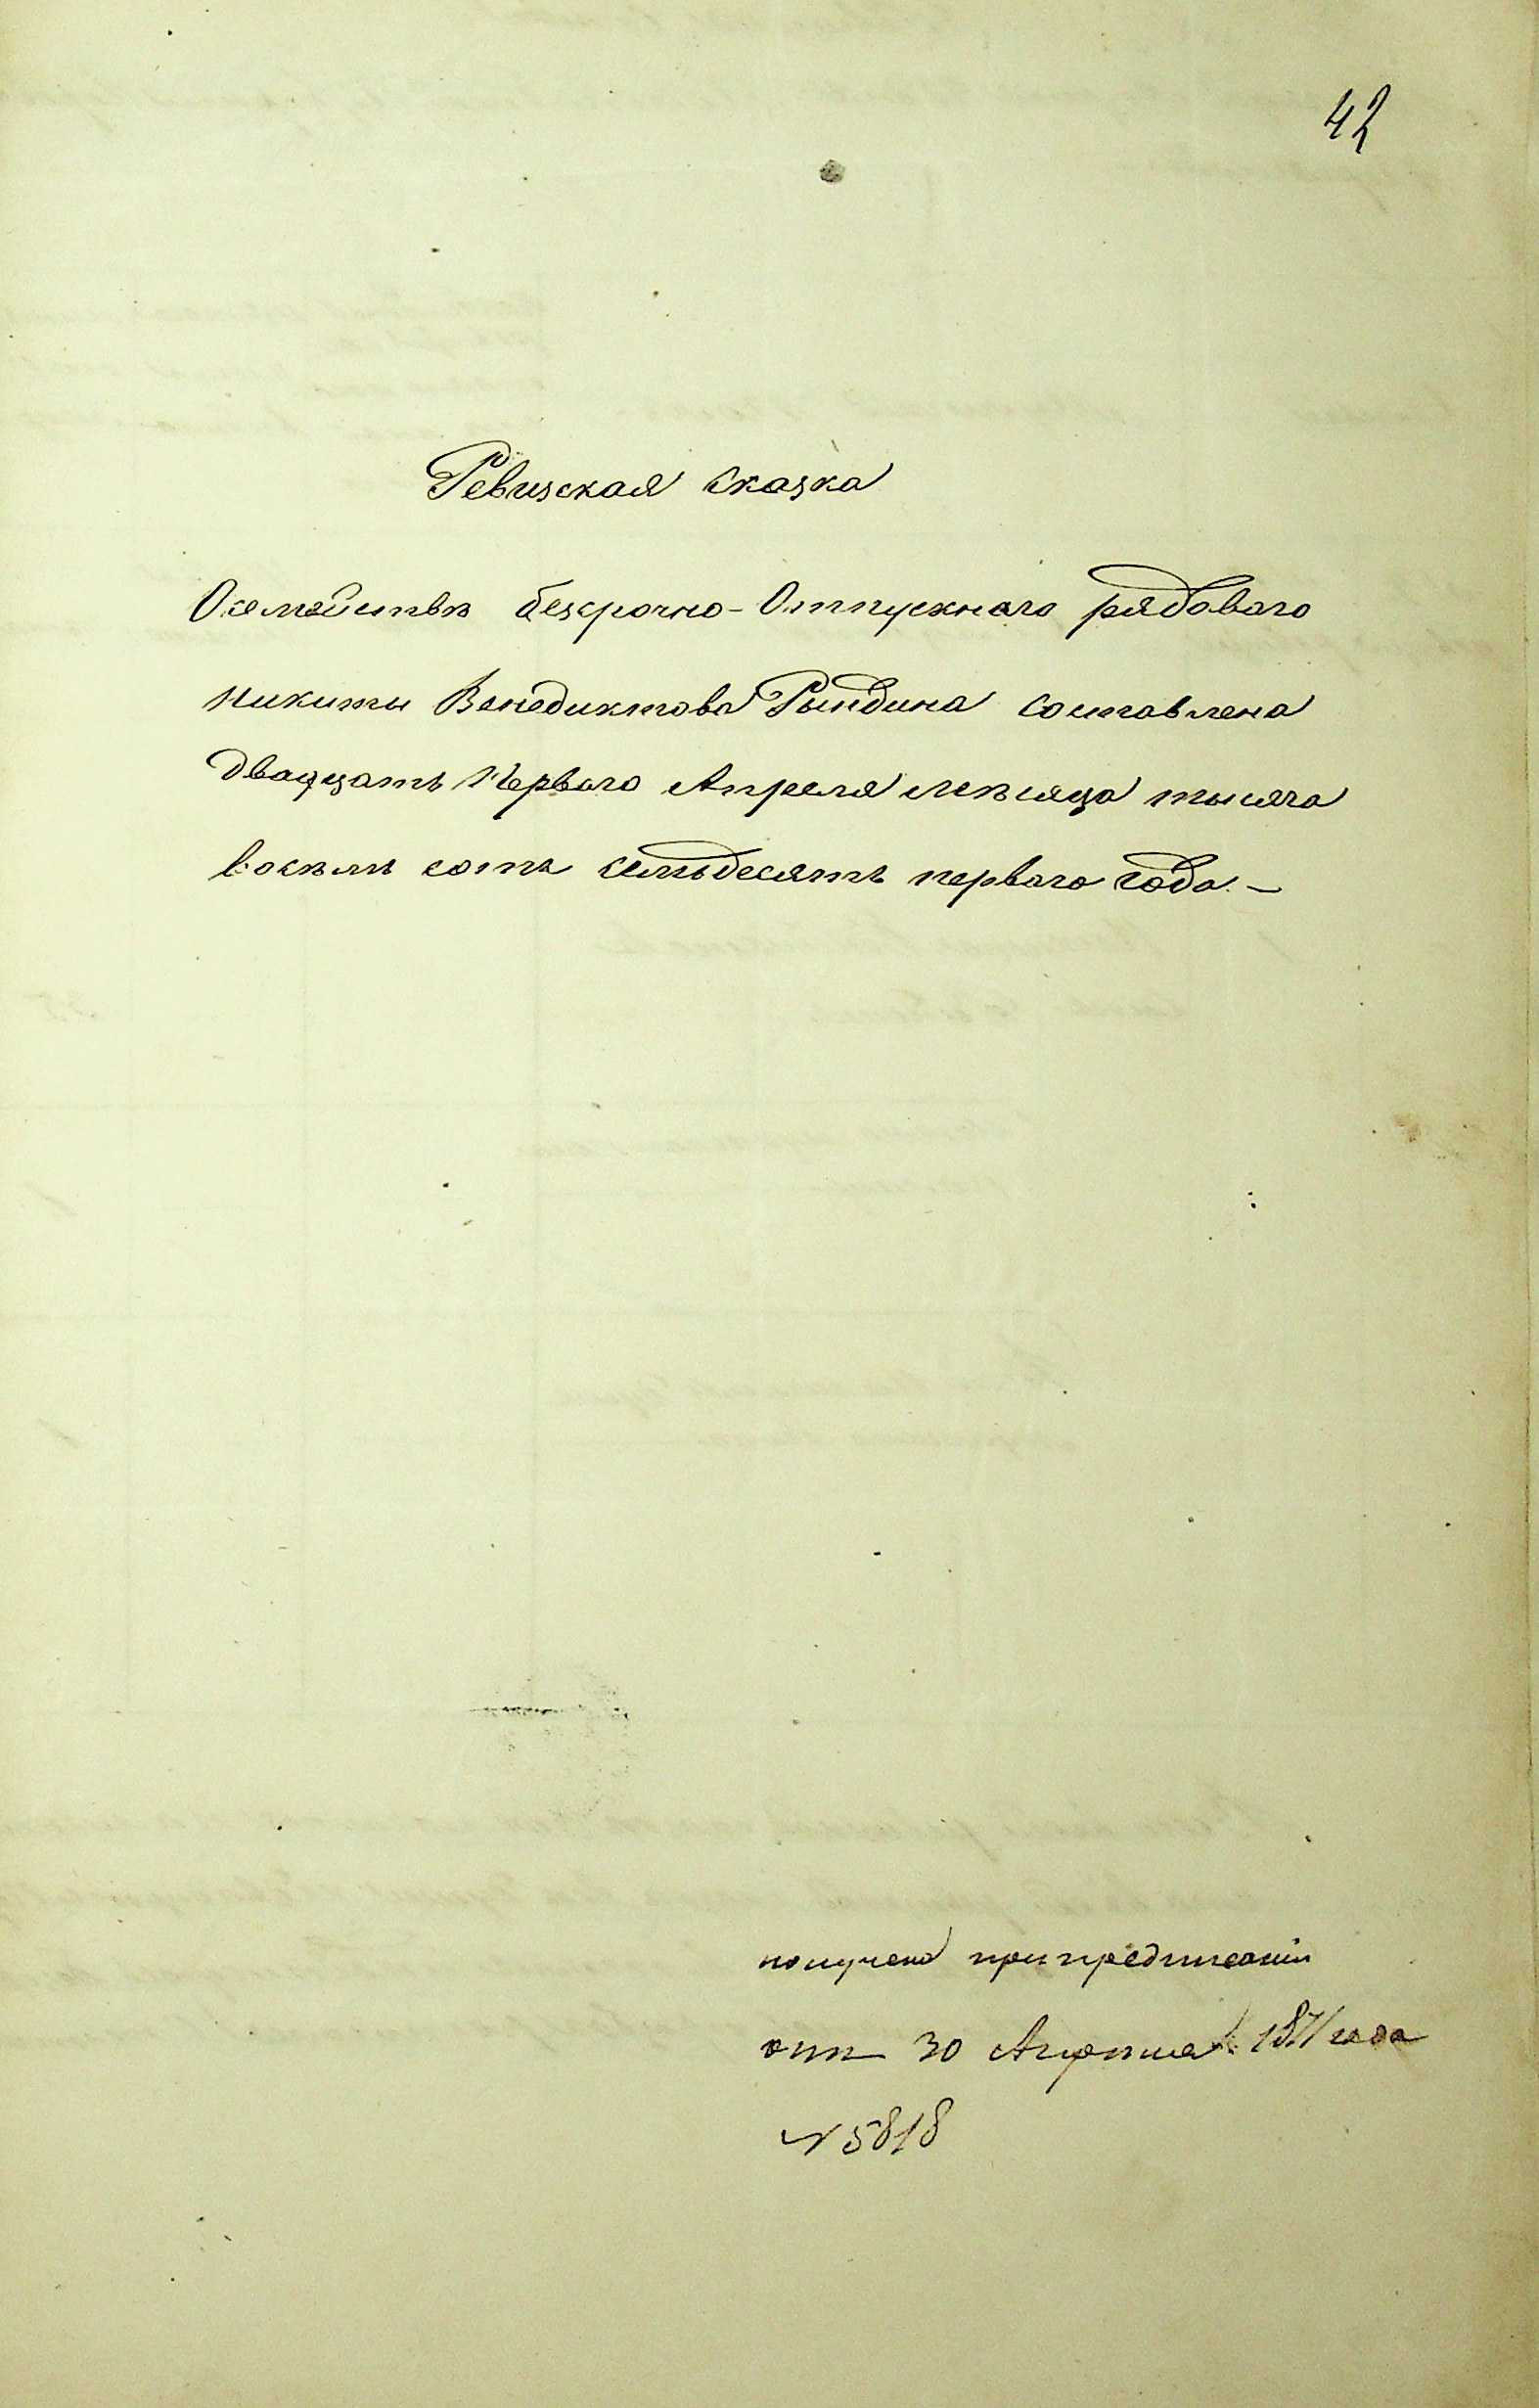 42
Ревизская сказка
О семействѣ безсрочно-Отпускнаго рядоваго
Никиты Венедиктова Рындина составлена
двадцать Перваго Апреля месяца тысяча
восемь сотъ семьдесятъ перваго года. —
получена при предписаніи
отъ 30 Апрѣля 1871 года
№ 5818